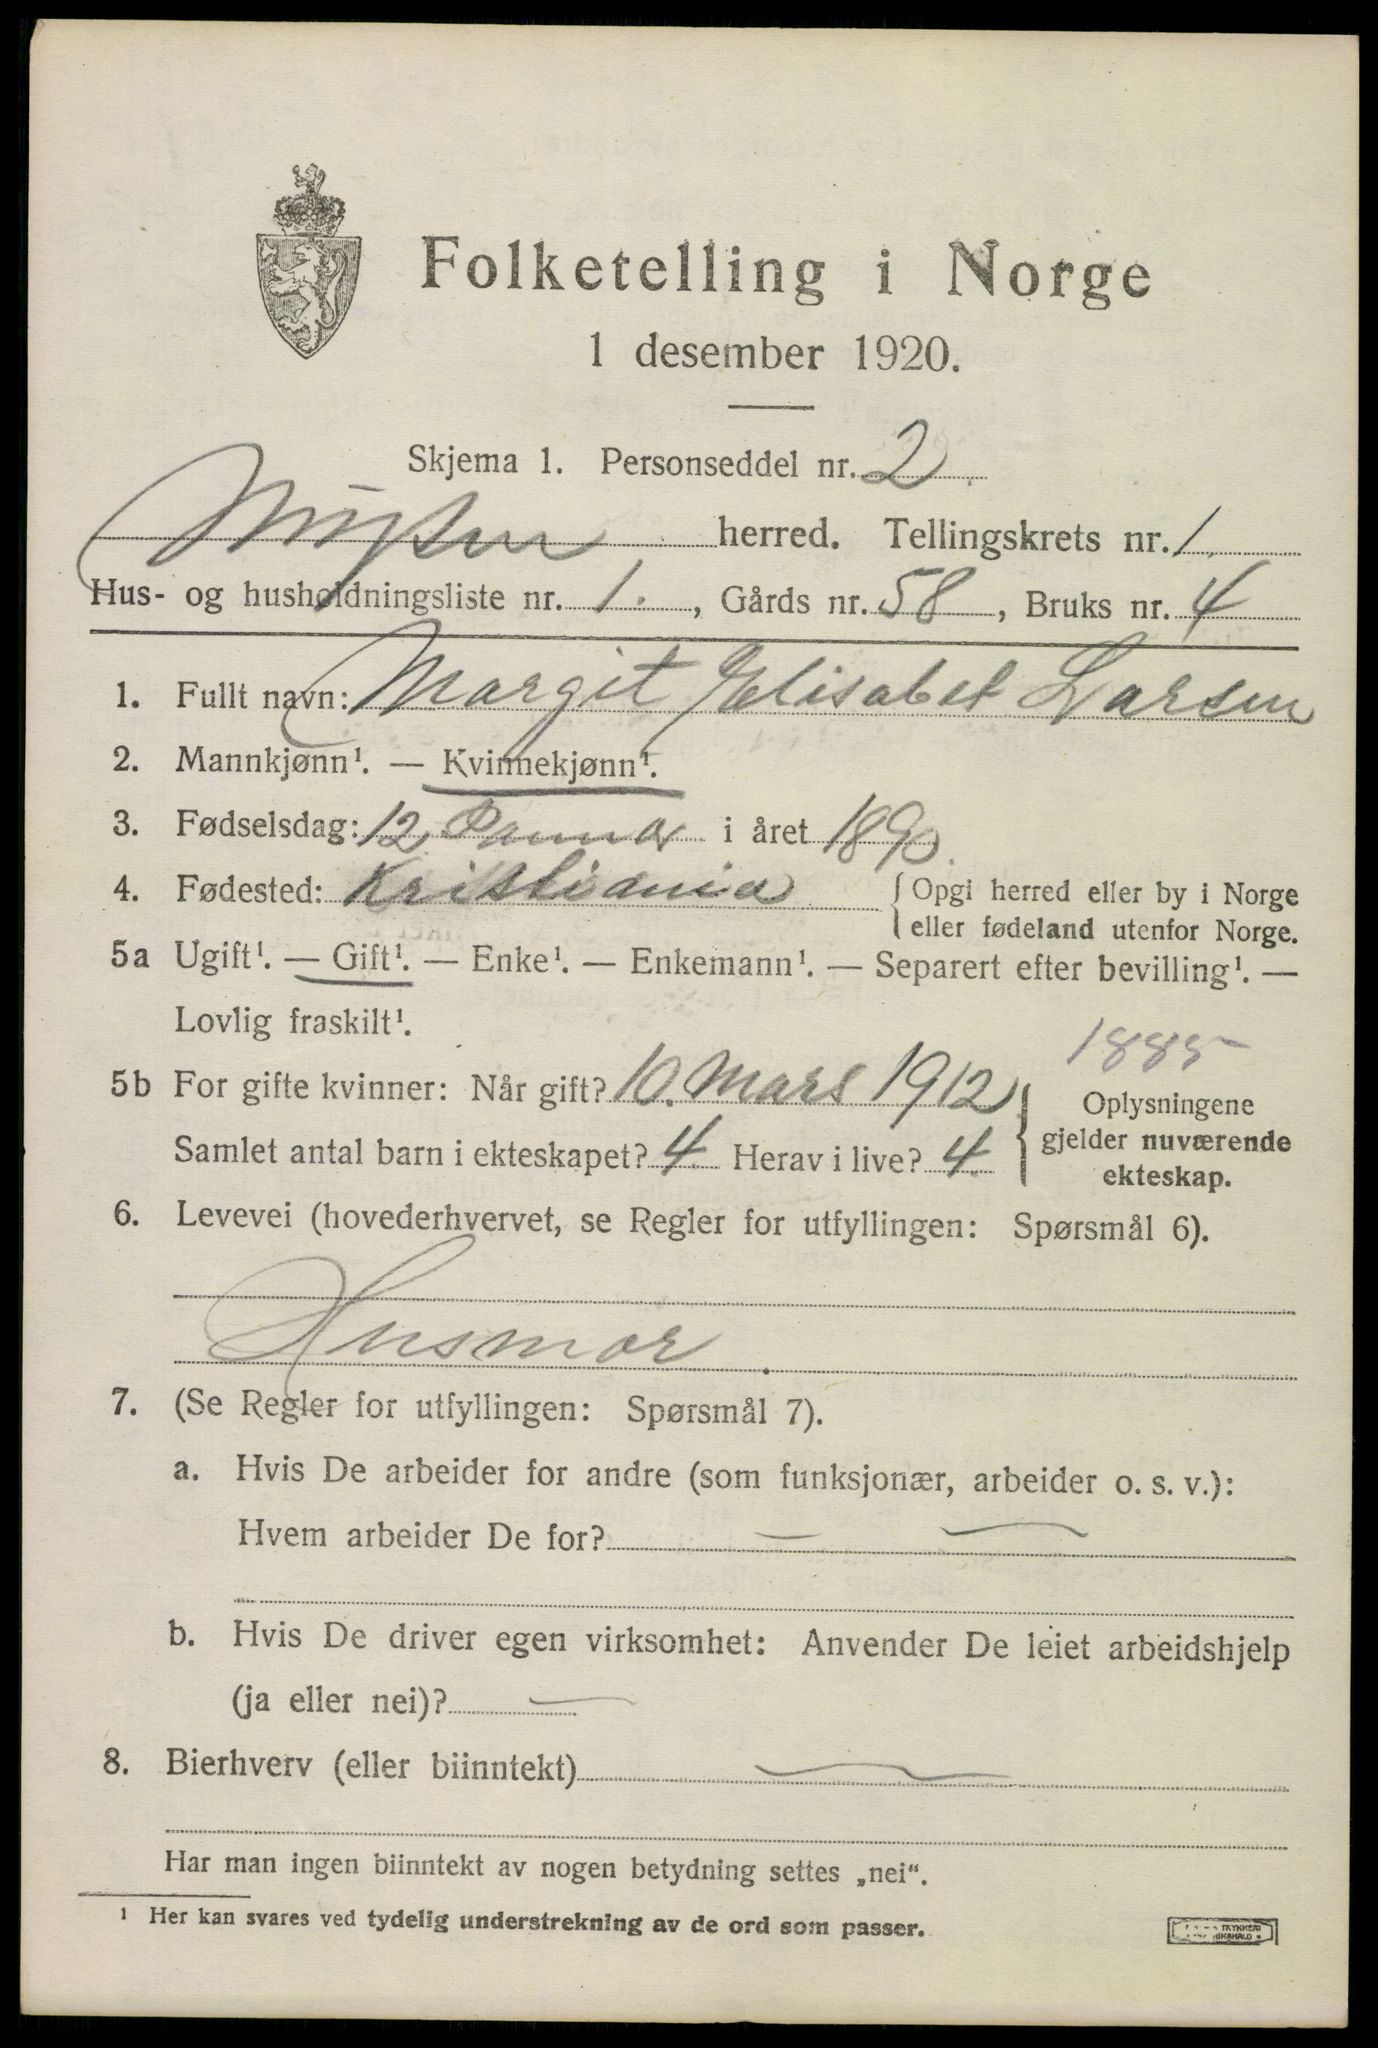 Folketelling i Norge
1 desember 1920.
Skjema 1. Personseddel nr. 2.
herred. Tellingskrets nr. 1.
Hus- og husholdningsliste nr. 1. , Gårds nr. 58 , Bruks nr. 4
1. Fullt navn: Margit Elisabet Larsen
2. Mannkjønn¹. — Kvinnekjønn¹.
3. Fødselsdag: 12 Januar i året 1890.
4. Fødested: Kristiania { Opgi herred eller by i Norge
eller fødeland utenfor Norge.
5a Ugift¹. — Gift¹. — Enke¹. — Enkemann¹. — Separert efter bevilling¹. —
Lovlig fraskilt¹.
1885
5b For gifte kvinner: Når gift? 10. Mars 1912 } Oplysningene
gjelder nuværende
Samlet antal barn i ekteskapet? 4. Herav i live? 4.
ekteskap.
6. Levevei (hovederhvervet, se Regler for utfyllingen: Spørsmål 6).
Husmor.
7. (Se Regler for utfyllingen: Spørsmål 7).
a. Hvis De arbeider for andre (som funksjonær, arbeider o. s. v.):
Hvem arbeider De for? — —
b. Hvis De driver egen virksomhet: Anvender De leiet arbeidshjelp
(ja eller nei)? —
8. Bierhverv (eller biinntekt) —
Har man ingen biinntekt av nogen betydning settes „nei“.
¹ Her kan svares ved tydelig understrekning av de ord som passer.